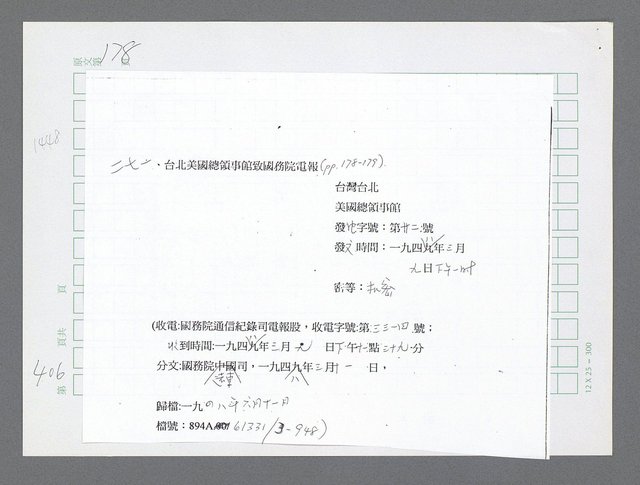 原文第178頁
1448
二七一、台北美國總領事館致國務院電報(pp.178-179)
台灣台北
美國總領事館
發電字號：第廿二號
發文時間：一九四八年三月
九日下午一時
密等：機密
(收電:國務院通信紀錄司電報股，收電字號:第三三一四號；
收到時間:一九四八年三月九日下午十點三十九分
分文:國務院中國司，一九四八年三月十一日，
歸檔:一九四八年六月十一月
檔號：894A 61331/3-948)
頁
頁共
406
第
12 X 25 = 300